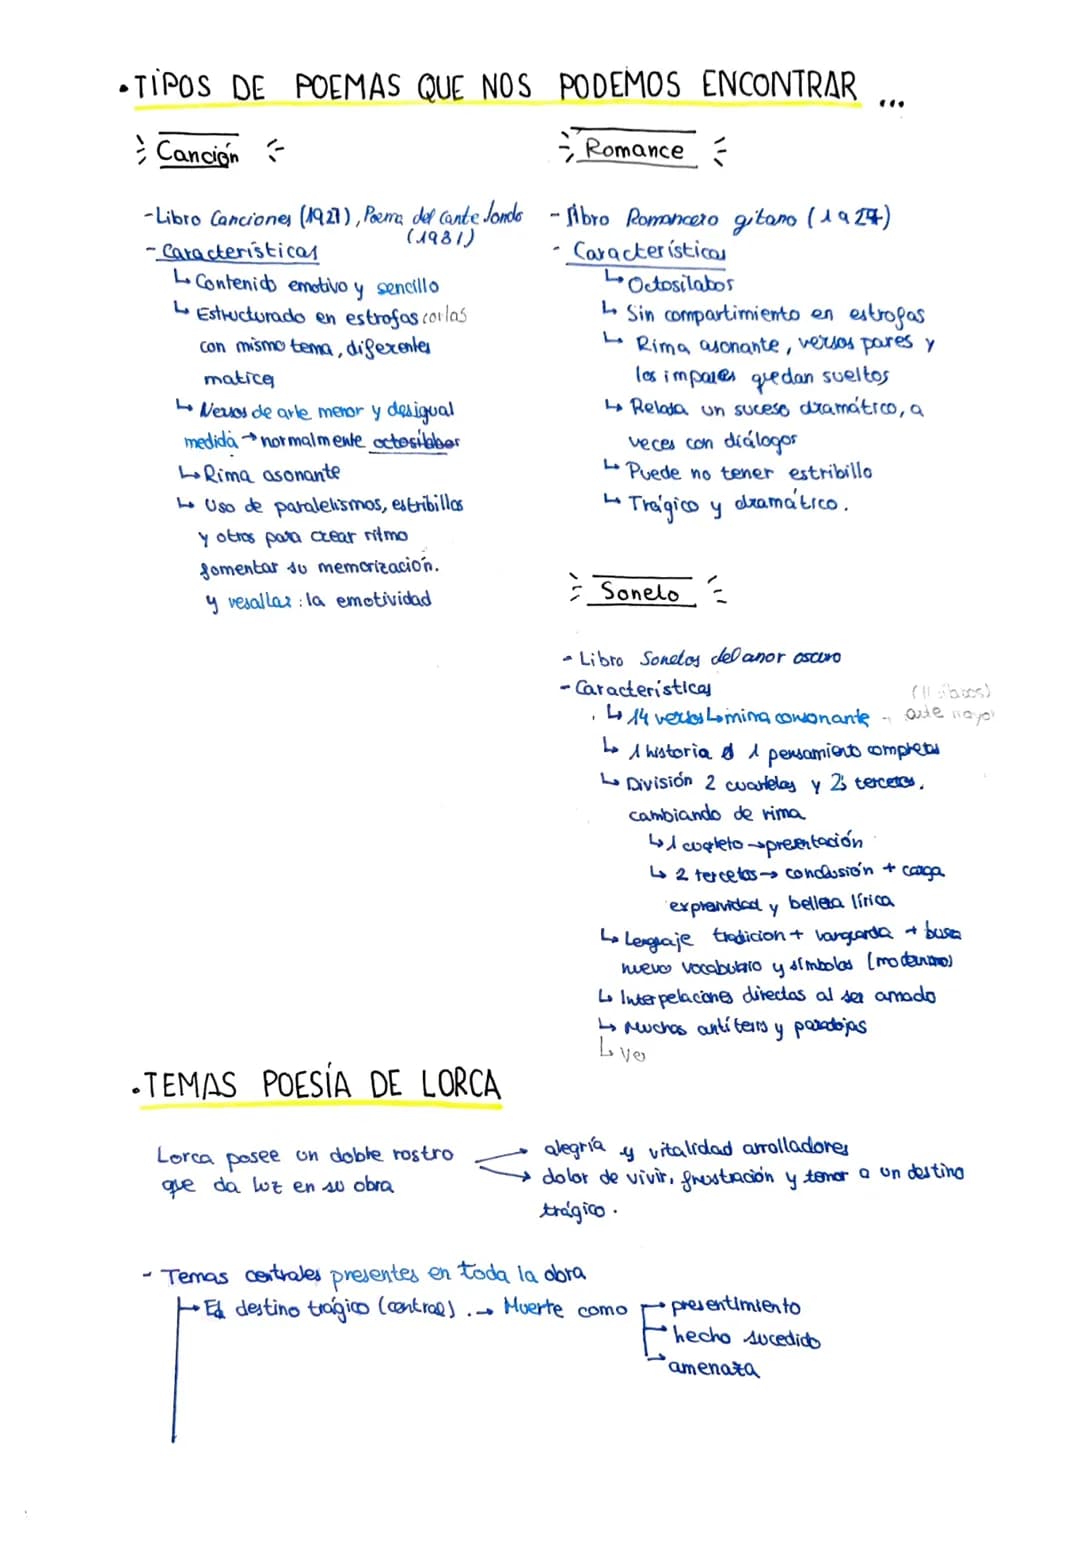 • TIPOS DE POEMAS QUE NOS PODEMOS ENCONTRAR ...
Canción
- Libro Canciones (1927), Poema del Cante Jondo
(1931)
- Características
↳ Contenido emotivo y sencillo
↳ Estructurado en estrofas cortas
con mismo tema, diferentes
matices
↳ Versos de arte menor y desigual
medida → normalmente octosílabos
↳ Rima asonante
↳ Uso de paralelismos, estribillos
y otros para crear ritmo
fomentar su memorización.
y resaltar la emotividad
Romance
- libro Romancero gitano (1927)
- Características
↳ Octosílabos
↳ Sin compartimiento en estrofas
↳ Rima asonante, versos pares y
los impares quedan sueltos
↳ Relata un suceso dramático, a
veces con diálogos
↳ Puede no tener estribillo
↳ Trágico y dramático.
Soneto
- Libro Sonetos del amor oscuro
- Características
(11 sílabas)
↳ 14 versos ↳ rima consonante - arte mayor
↳ 1 historia o 1 pensamiento completo
↳ División 2 cuartetos y 2 tercetos.
cambiando de rima
↳ 1 cuarteto → presentación
↳ 2 tercetos → conclusión + carga
expresividad y belleza lírica
↳ Lenguaje tradicion + vanguarda + busca
nuevo vocabulario y símbolos (modernismo)
↳ Interpelaciones directas al ser amado
↳ Muchos antítesis y paradojas
↳ Ver
• TEMAS POESÍA DE LORCA
Lorca posee un doble rostro
que da luz en su obra
→ alegría y vitalidad arrolladores
→ dolor de vivir, frustración y temor a un destino
trágico.
- Temas centrales presentes en toda la obra
→ El destino trágico (central). → Muerte como → presentimiento
→ hecho sucedido
→ amenaza